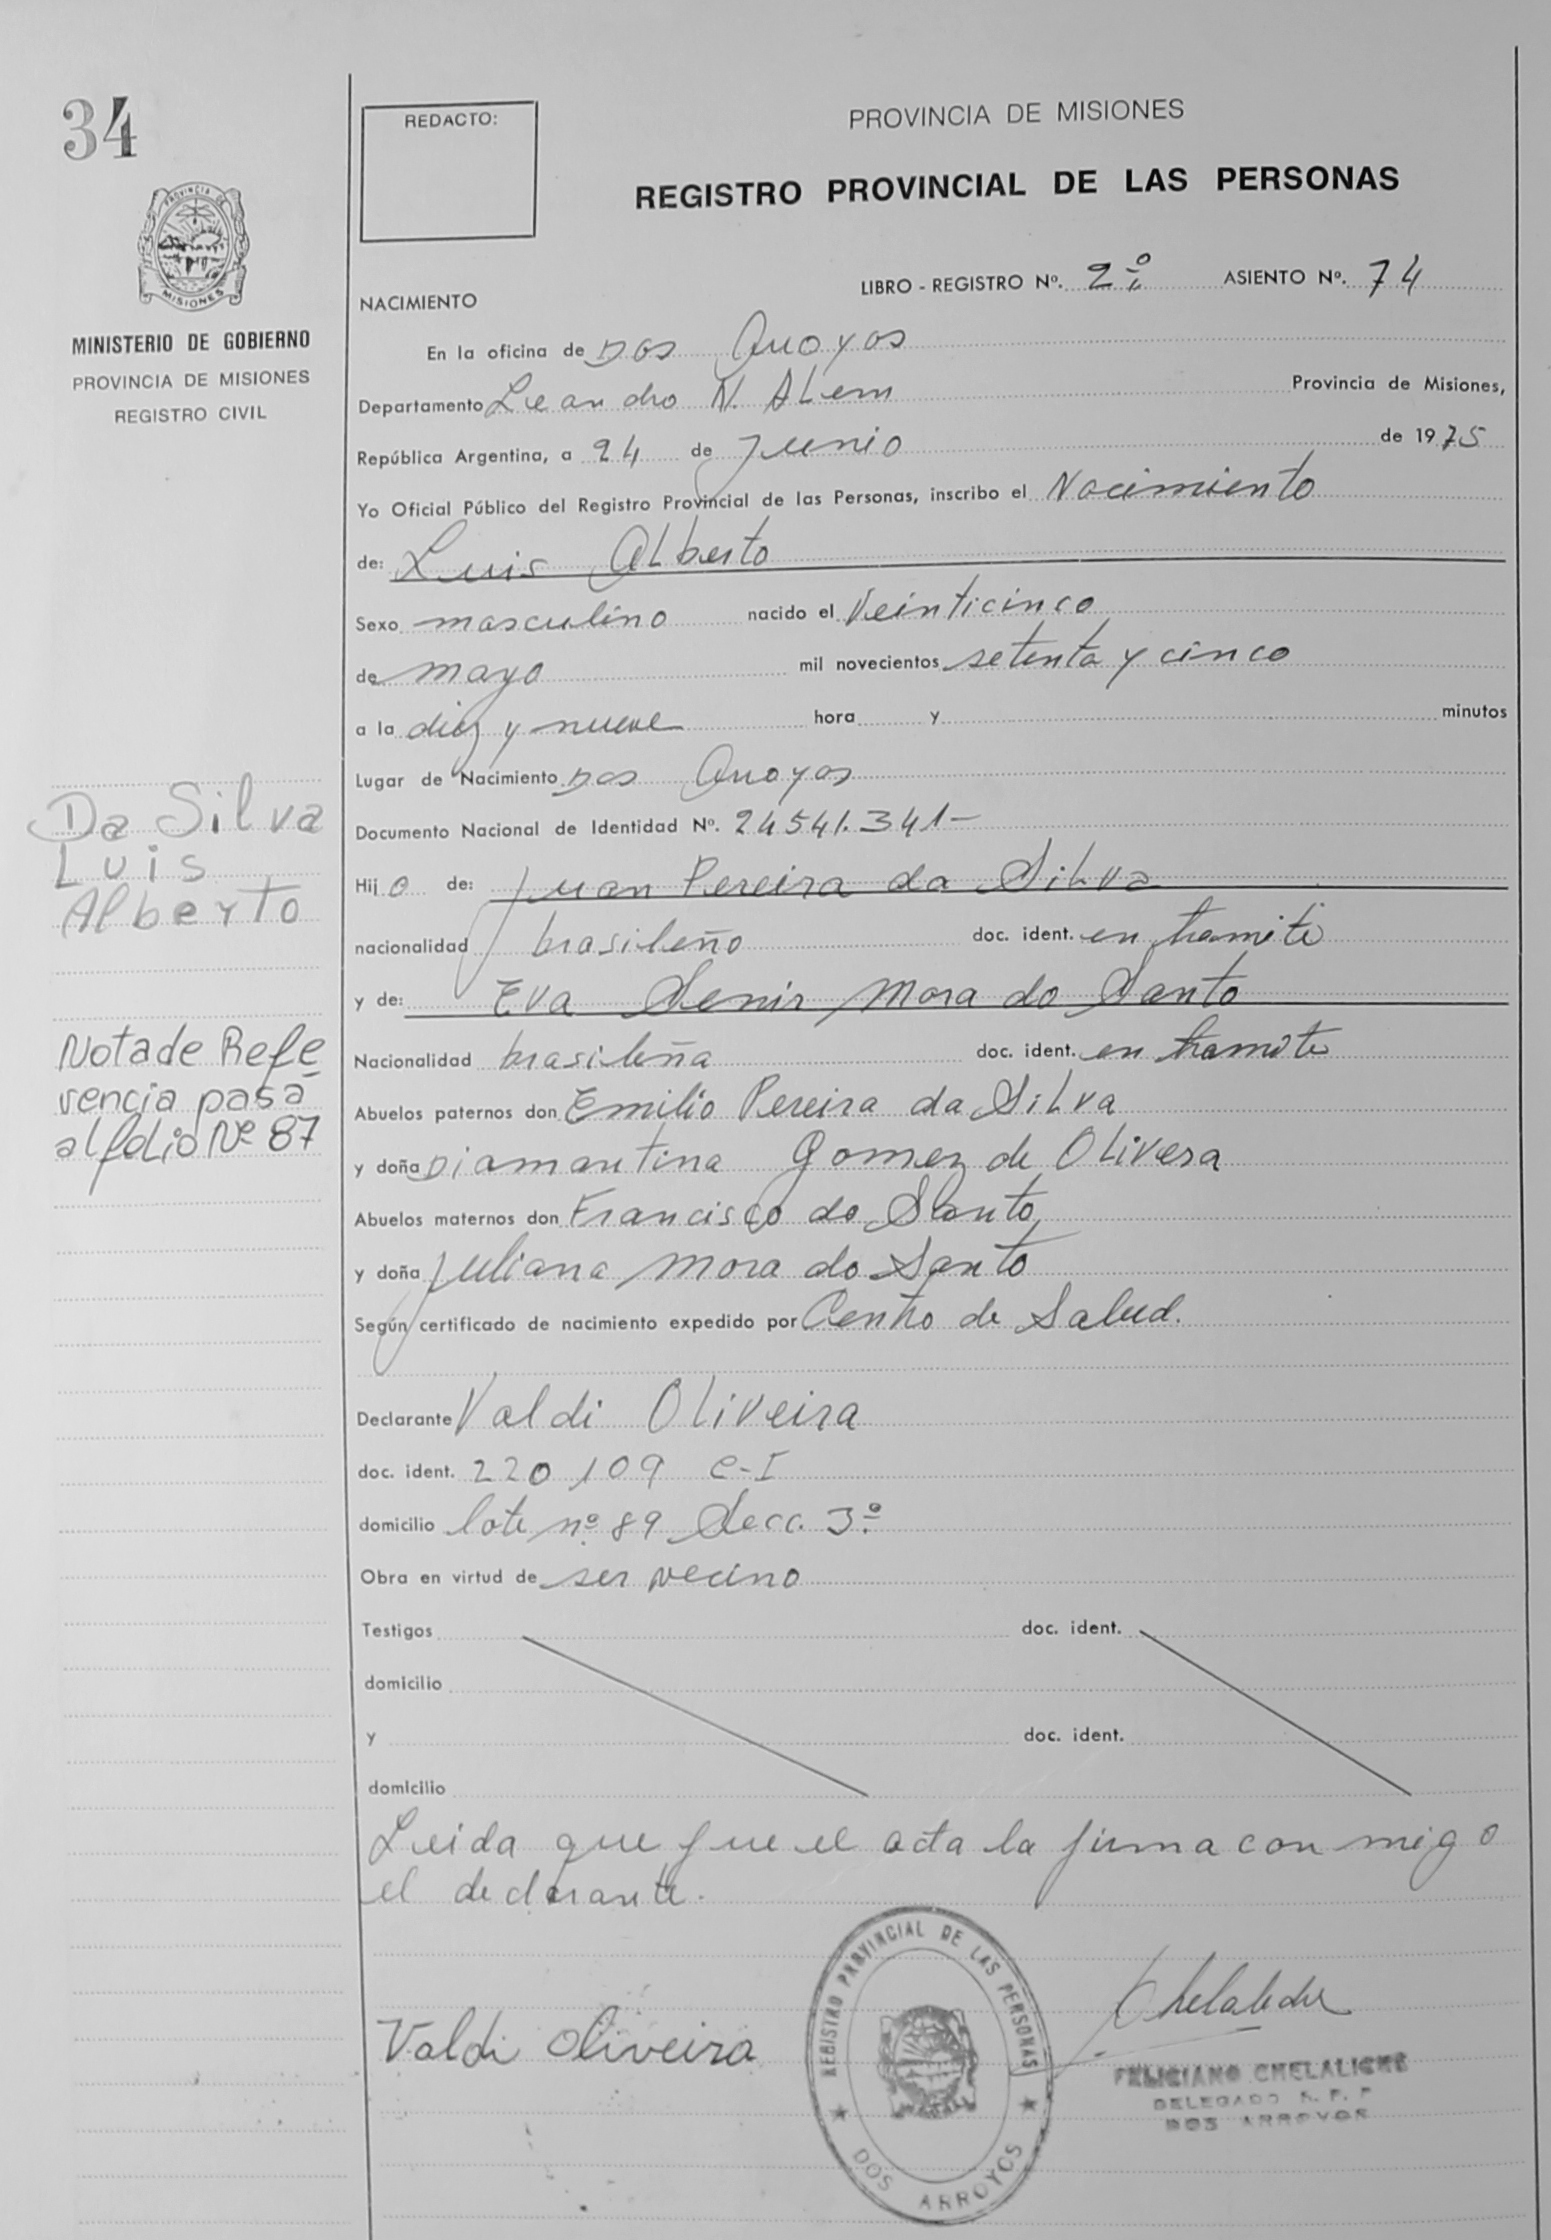 34
REDACTO:
PROVINCIA DE MISIONES
REGISTRO PROVINCIAL DE LAS PERSONAS
PROVINCIA DE
MISIONES
MINISTERIO DE GOBIERNO
PROVINCIA DE MISIONES
REGISTRO CIVIL
LIBRO - REGISTRO Nº. 2º ASIENTO Nº. 74
NACIMIENTO
En la oficina de Dos Arroyos
Departamento Leandro N. ALem Provincia de Misiones,
República Argentina, a 24 de Junio de 1975
Yo Oficial Público del Registro Provincial de las Personas, inscribo el Nacimiento
de: Luis ALberto
Sexo masculino nacido el Veinticinco
de mayo mil novecientos setenta y cinco
a la diez y nueve hora y minutos
Lugar de Nacimiento Dos Arroyos
Documento Nacional de Identidad Nº. 24541.341-
Hijo de: Juan Pereira da SiLva
nacionalidad brasileño doc. ident. en tramite
y de: Eva Senir Mora do Santo
Nacionalidad brasileña doc. ident. en tramite
Abuelos paternos don Emilio Pereira da SiLva
y doña Diamantina Gomez de OLivera
Abuelos maternos don Francisco do Santo
y doña Juliana Mora do Santo
Según certificado de nacimiento expedido por Centro de Salud.
Declarante Valdi OLiveira
doc. ident. 220109 C-I
domicilio lote nº 89 Secc. 3º
Obra en virtud de ser vecino
Testigos doc. ident.
domicilio
y doc. ident.
domicilio
Leida que fue el acta la firma con migo
el declarante.
Da Silva
Luis
Alberto
Nota de Refe
rencia pasa
al folio Nº 87
Valdi Oliveira
REGISTRO PROVINCIAL DE LAS PERSONAS
DOS ARROYOS
Chelaliche
FELICIANO CHELALICHE
DELEGADO R. P. P
DOS ARROYOS